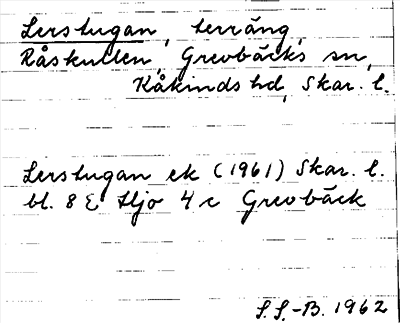 Lerstugan, terräng,
Råskullen, Grevbäcks sn,
Kåkinds hd, Skar. l.
Lerstugan ek (1961) Skar. l.
bl. 8 E Hjo 4 c Grevbäck
S.S.-B. 1962